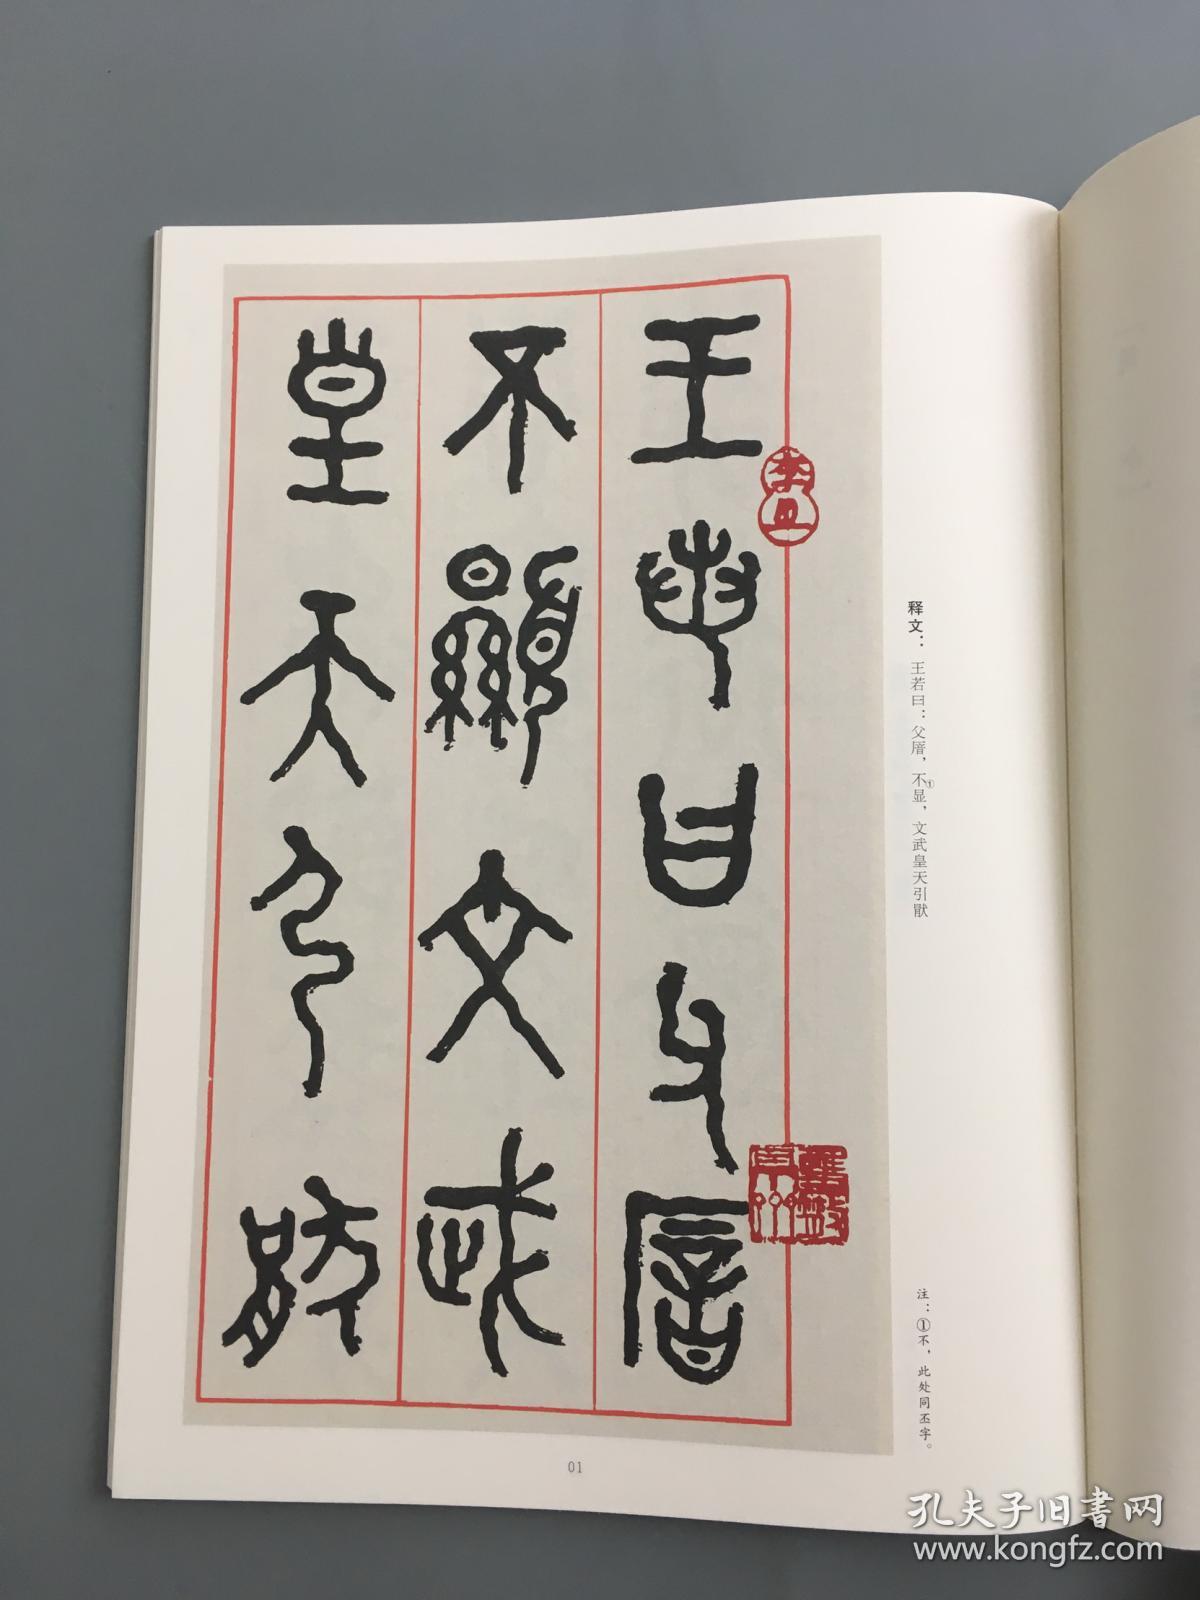 王若曰父厝
不显文武
皇天引猒
释文：王若曰：父厝，不①显，文武皇天引猒
注：①不，此处同丕字。
01
孔夫子旧书网
www.kongfz.com